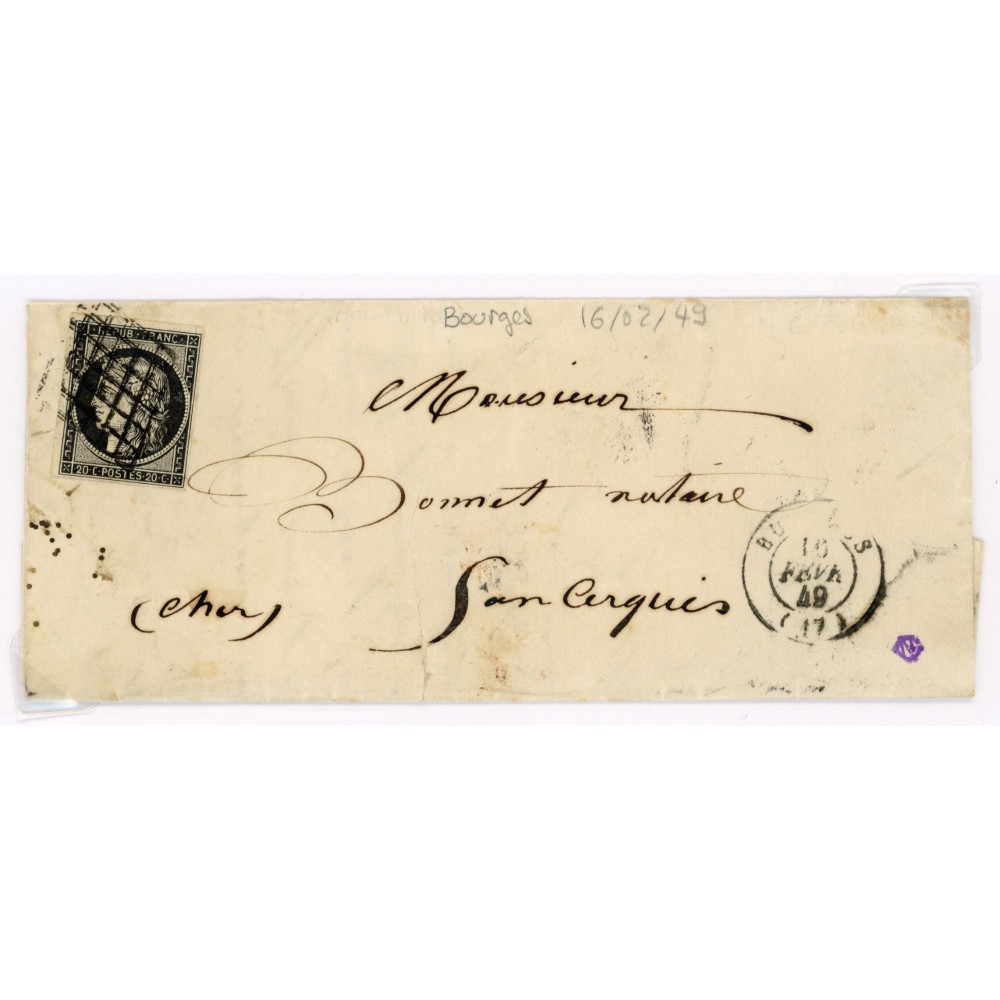 Bourges 16/02/49
REPUB. FRANC.
20 C. POSTES. 20 C.
Monsieur
Bonnet notaire
(Cher) Sancergues
16
FEVR
49
(17)